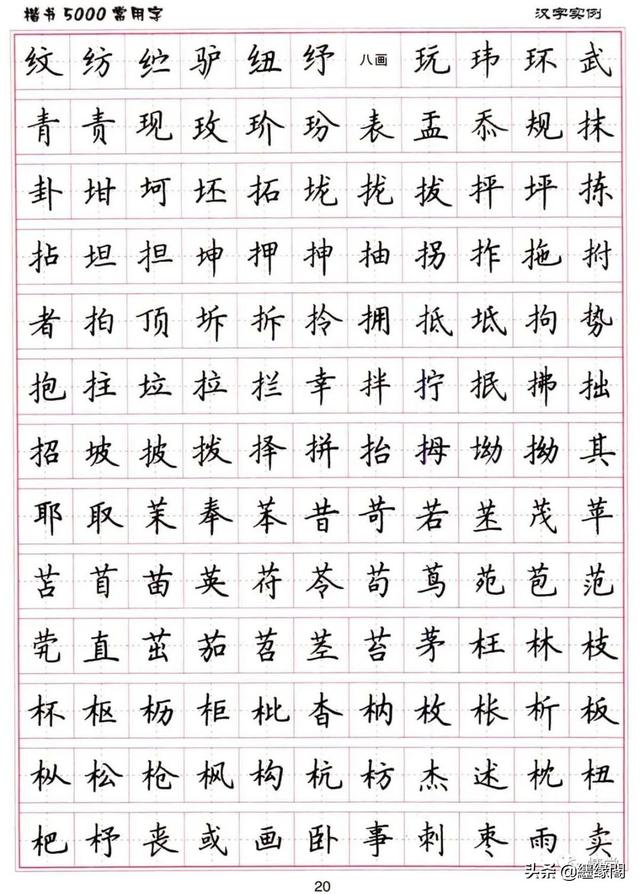 楷书5000常用字 汉字实例
纹 纺 纻 驴 纽 纾 八画 玩 玮 环 武
青 责 现 玫 玠 玢 表 盂 忝 规 抹
卦 坩 坷 坯 拓 垅 拢 拔 抨 坪 拣
拈 坦 担 坤 押 抻 抽 拐 拃 拖 拊
者 拍 顶 坼 拆 拎 拥 抵 坻 拘 势
抱 拄 垃 拉 拦 幸 拌 拧 抿 拂 拙
招 坡 披 拨 择 拚 抬 拇 坳 拗 其
耶 取 茉 奉 苯 昔 苛 若 茂 苹
苫 苜 苗 英 苻 苓 茍 茑 苑 苞 范
茕 直 茁 茄 苕 茎 苔 茅 枉 林 枝
杯 枢 枥 柜 枇 杳 枘 枚 枨 析 板
枞 松 枪 枫 构 杭 枋 杰 述 枕 杻
杷 杼 丧 或 画 卧 事 刺 枣 雨 卖
头条 @纒缘閣
20